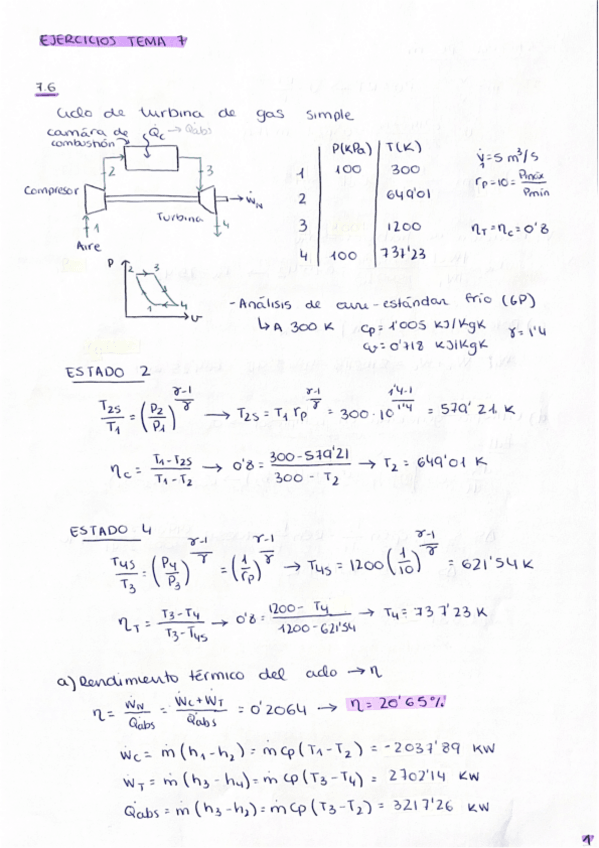 EJERCICIOS TEMA 7
7.6
Ciclo de turbina de gas simple
camára de combustión
Q̇c → Q̇abs
2
3
Compresor
Turbina
ẆN
1
4
Aire
P(KPa) T(K)
1 100 300
2 649'01
3 1200
4 100 737'23
V̇1 = 5 m³/s
rp = 10 = Pmáx/Pmin
ηT = ηc = 0'8
P
2 3
1 4
v
- Análisis de aire-estándar frío (GP)
↳ A 300 K cp = 1'005 KJ/KgK
cv = 0'718 KJ/KgK
γ = 1'4
ESTADO 2
T2s/T1 = (P2/P1)^(γ-1/γ) → T2s = T1 rp^(γ-1/γ) = 300·10^(1'4-1/1'4) = 579'21 K
ηc = T1-T2s/T1-T2 → 0'8 = 300-579'21/300-T2 → T2 = 649'01 K
ESTADO 4
T4s/T3 = (P4/P3)^(γ-1/γ) = (1/rp)^(γ-1/γ) → T4s = 1200(1/10)^(γ-1/γ) = 621'54 K
ηT = T3-T4/T3-T4s → 0'8 = 1200-T4/1200-621'54 → T4 = 737'23 K
a) Rendimiento térmico del ciclo → η
η = ẆN/Q̇abs = Ẇc+ẆT/Q̇abs = 0'2064 → η = 20'65%
Ẇc = ṁ(h1-h2) = ṁcp(T1-T2) = -2037'89 KW
ẆT = ṁ(h3-h4) = ṁcp(T3-T4) = 2702'14 KW
Q̇abs = ṁ(h3-h2) = ṁcp(T3-T2) = 3217'26 KW
1